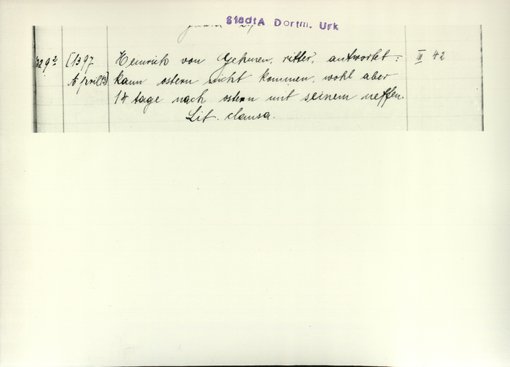 StadtA Dortm. Urk
(1397
Heinrich von Gehmen, ritter, antwortet: II 42
April?)
kann ostern nicht kommen, wohl aber
14 tage nach ostern mit seinem neffen.
Lit. clausa.